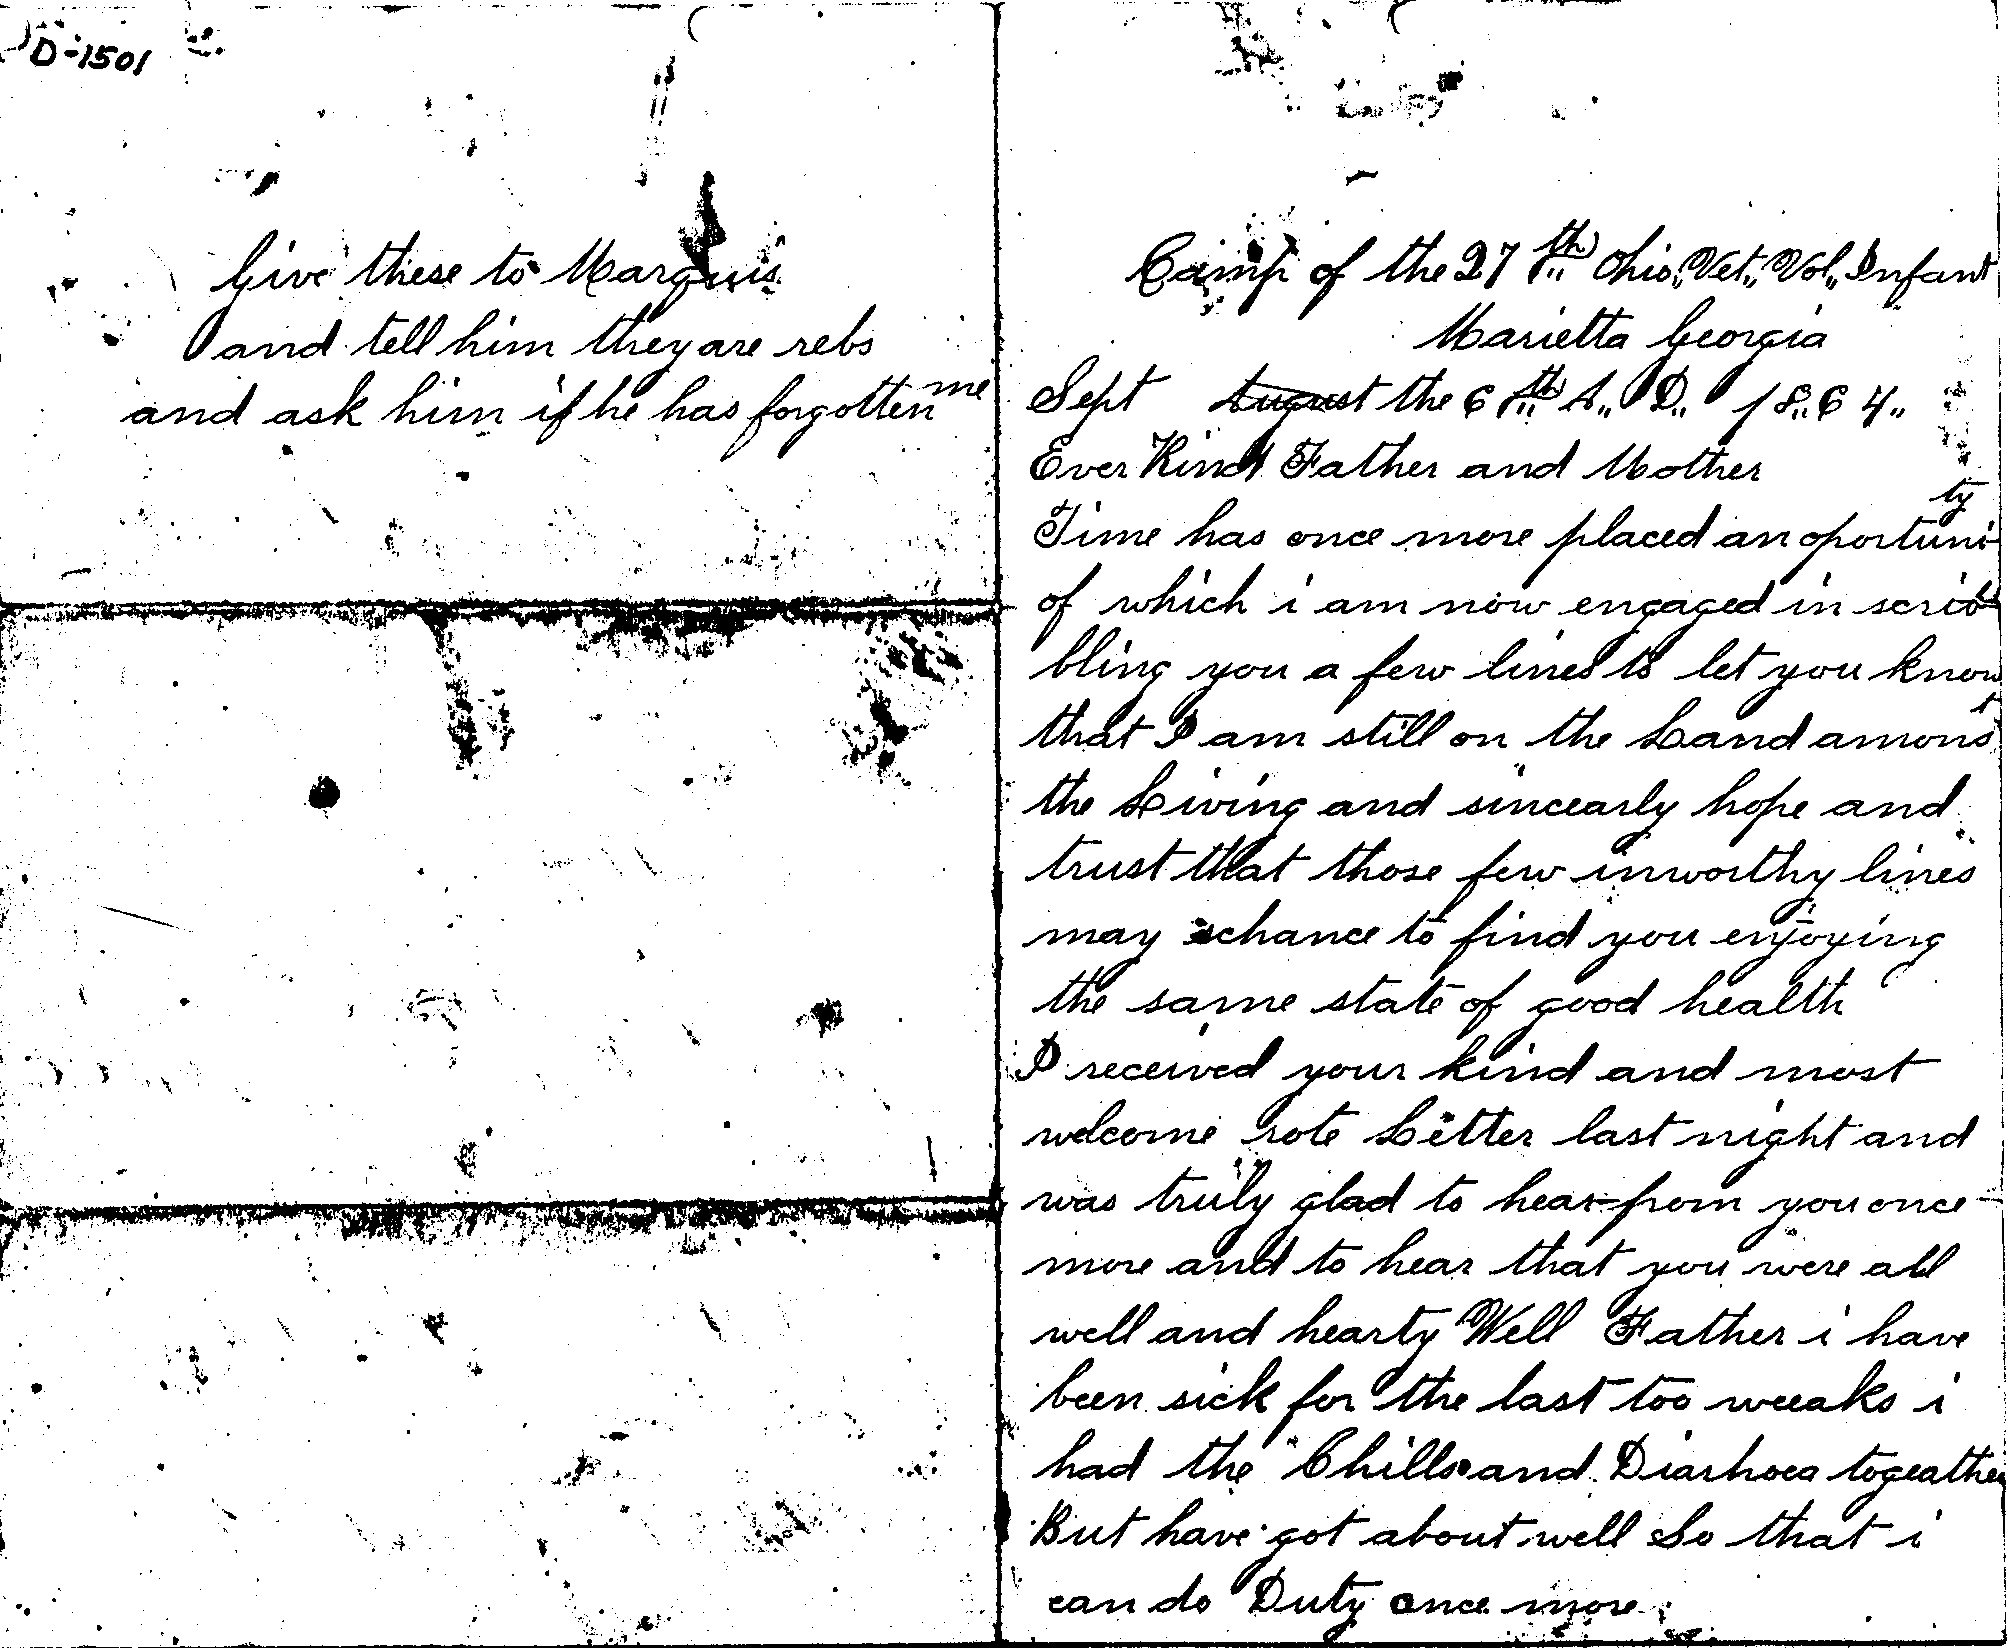 D-1501
Give these to Marquis
and tell him they are rebs
and ask him if he has forgotten me
Camp of the 27th Ohio,, Vet,, Vol,, Infant
Marietta Georgia
Sept ~~August~~ the 6th A,, D,, 18,,64,,
Ever Kind Father and Mother
Time has once more placed an oportunity
of which i am now engaged in scrib
bling you a few lines to let you know
that I am still on the Land amonst
the Living and sincearly hope and
trust that those few inworthy lines
may chance to find you enjoying
the same state of good health
I received your kind and most
welcome rote Letter last night and
was truly glad to hear from you once
more and to hear that you were all
well and hearty Well Father i have
been sick for the last too weeaks i
had the Chills and Diarhoea togeather
But have got about well So that i
can do Duty once more